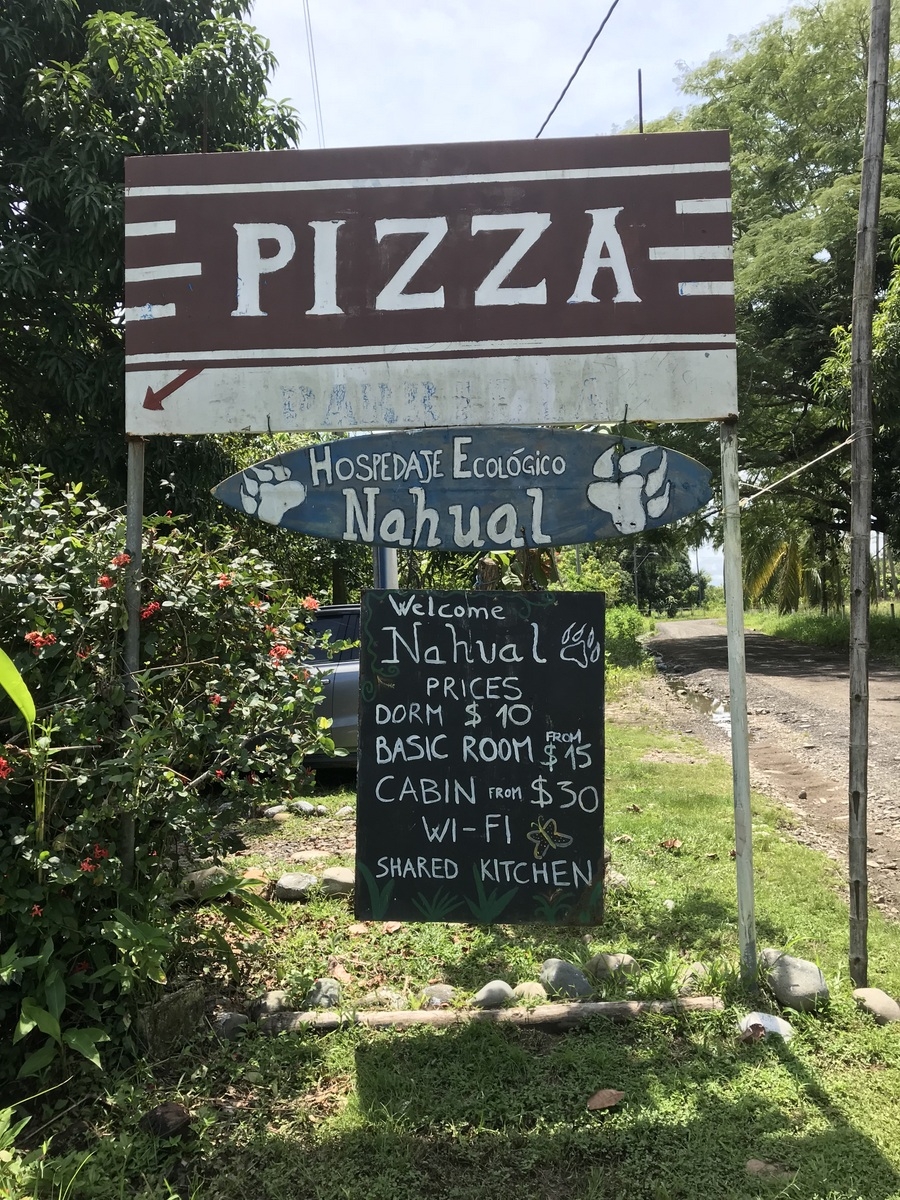 PIZZA
PARRILLA
HOSPEDAJE ECOLÓGICO
Nahual
Welcome
Nahual
PRICES
DORM $ 10
BASIC ROOM FROM $15
CABIN FROM $30
WI-FI
SHARED KITCHEN